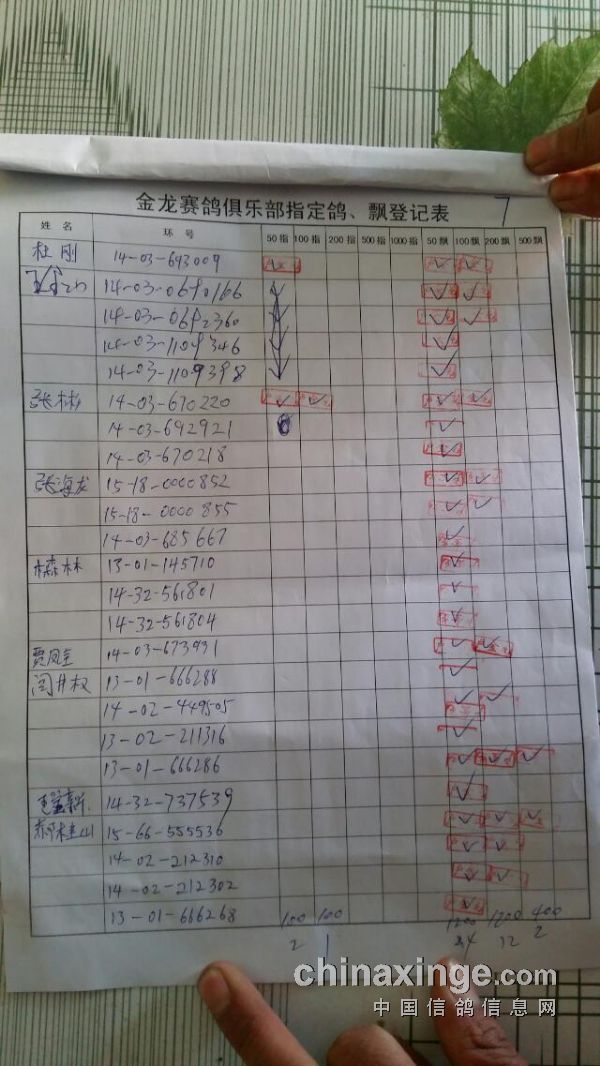 金龙赛鸽俱乐部指定鸽、飘登记表 7
姓名 环号 50指 100指 200指 500指 1000指 50飘 100飘 200飘 500飘
杜刚 14-03-693009
14-03-0690166
14-03-0692360
14-03-1109346
14-03-1109398
张彬 14-03-670220
14-03-692921
14-03-670218
张海龙 15-18-0000852
15-18-0000855
14-03-685667
林 13-01-145710
14-32-561801
14-32-561804
贾凤 14-03-673931
闫井权 13-01-666288
14-02-449505
13-02-211316
13-01-666286
14-32-737539
郝桂山 15-66-555536
14-02-212310
14-02-212302
13-01-666268
100 100 1200 1200 400
2 1 24 12 2
chinaxinge.com
中国信鸽信息网